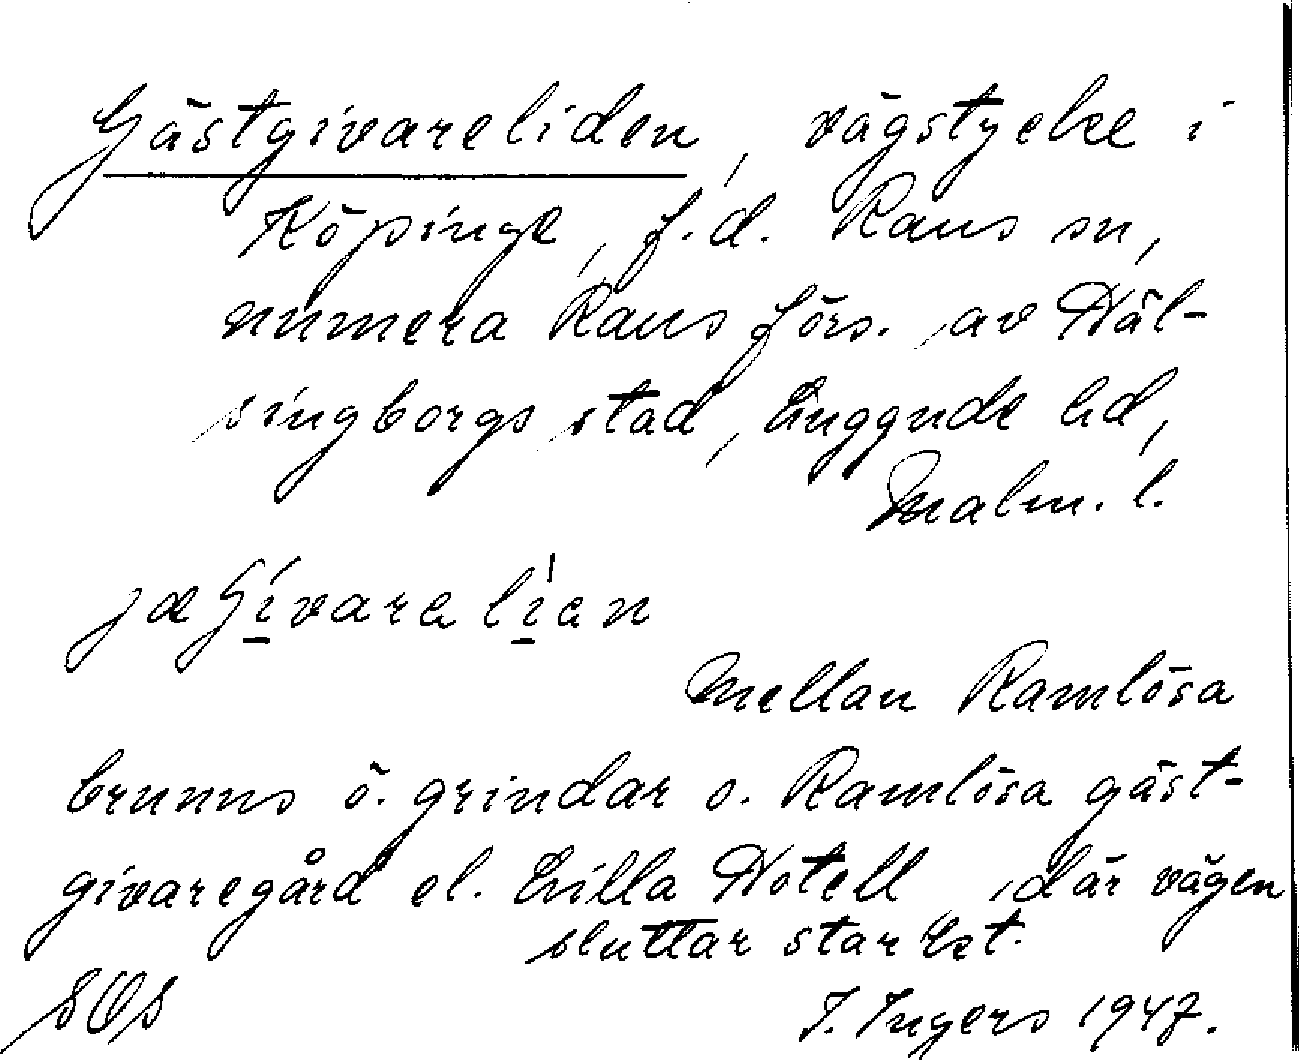 Gästgivareliden, vägstycke i
Köpinge, f.d. Raus sn,
numera Raus förs. av Häl-
singborgs stad, Luggude hd,
Malm. l.
Mellan Ramlösa
brunns ö. grindar o. Ramlösa gäst-
givaregård el. Lilla Hotell, där vägen
sluttar starkt.
SOS
I. Ingers 1947.